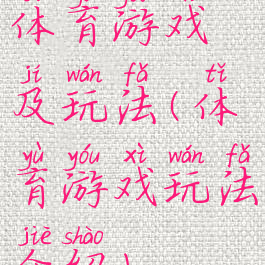 体育游戏
jí wán fǎ tǐ
及玩法(体
yù yóu xì wán fǎ
育游戏玩法
jiè shào
介绍)